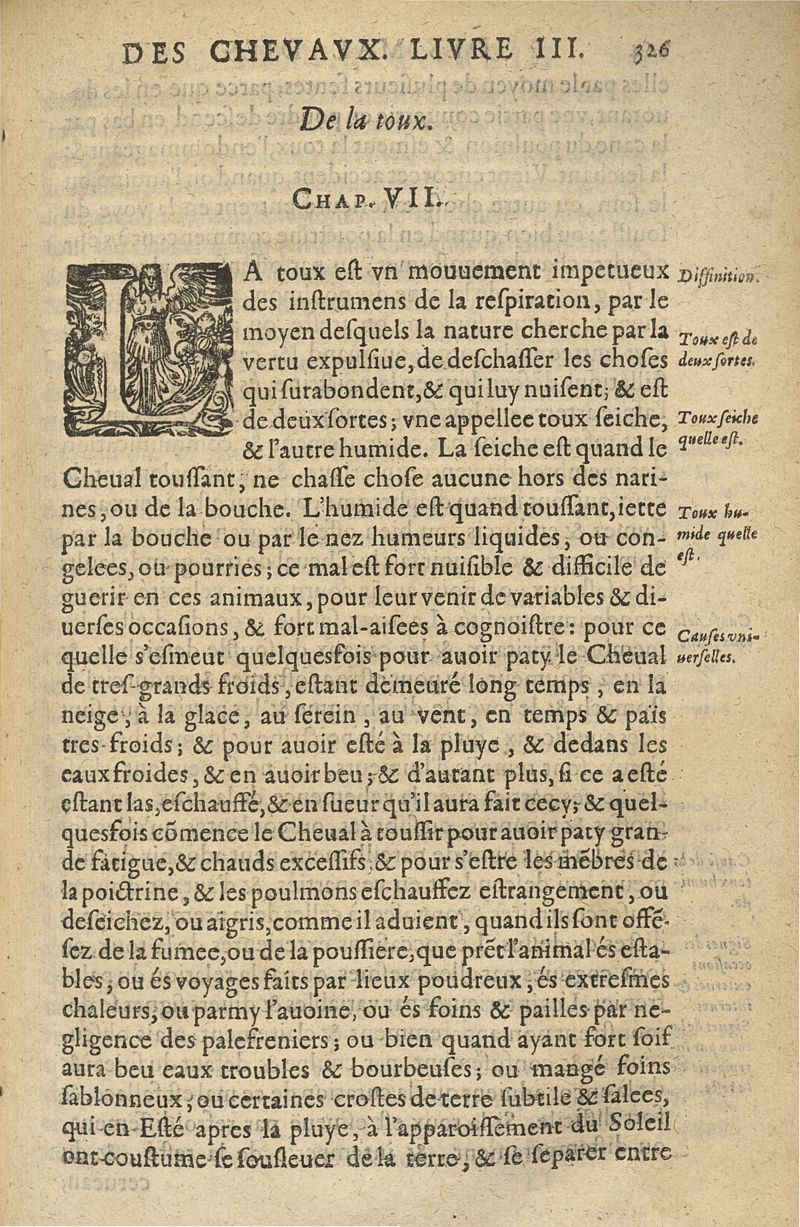 DES CHEVAVX. LIVRE III. 326
De la toux.
CHAP. VII.
LA toux eſt vn mouuement impetueux
des inſtrumens de la reſpiration, par le
moyen deſquels la nature cherche par la
vertu expulſiue, de deſchaſſer les choſes
qui ſurabondent, & qui luy nuiſent; & eſt
de deux ſortes; vne appellee toux ſeiche,
& l'autre humide. La ſeiche eſt quand le
Cheual touſſant, ne chaſſe choſe aucune hors des nari-
nes, ou de la bouche. L'humide eſt quand touſſant, iette
par la bouche ou par le nez humeurs liquides, ou con-
gelees, ou pourries; ce mal eſt fort nuiſible & difficile de
guerir en ces animaux, pour leur venir de variables & di-
uerſes occaſions, & fort mal-aiſees à cognoiſtre: pour ce
quelle s'eſmeut quelquesfois pour auoir paty le Cheual
de treſ-grands froids, eſtant demeuré long temps, en la
neige, à la glace, au ſerein, au vent, en temps & païs
tres-froids; & pour auoir eſté à la pluye, & dedans les
eaux froides, & en auoir beu; & d'autant plus, ſi ce a eſté
eſtant las, eſchauffé, & en ſueur qu'il aura fait cecy; & quel-
quesfois cõmence le Cheual à touſſir pour auoir paty gran-
de fatigue, & chauds exceſſifs, & pour s'eſtre les mẽbres de
la poictrine, & les poulmons eſchauffez eſtrangement, ou
deſeichez, ou aigris, comme il aduient, quand ils ſont offé-
ſez de la fumee, ou de la pouſſiere, que prẽt l'animal és eſta-
bles, ou és voyages faits par lieux poudreux, és extreſmes
chaleurs, ou parmy l'auoine, ou és foins & pailles par ne-
gligence des palefreniers; ou bien quand ayant fort ſoif
aura beu eaux troubles & bourbeuſes; ou mangé foins
ſablonneux, ou certaines croſtes de terre ſubtile & ſalees,
qui en Eſté apres la pluye, à l'apparoiſſement du Soleil
ont couſtume ſe ſouſleuer de la terre, & ſe ſeparer entre
Diffinition.
Toux eſt de
deux ſortes.
Toux ſeiche
quelle eſt.
Toux hu-
mide quelle
eſt.
Cauſes vni-
uerſelles.